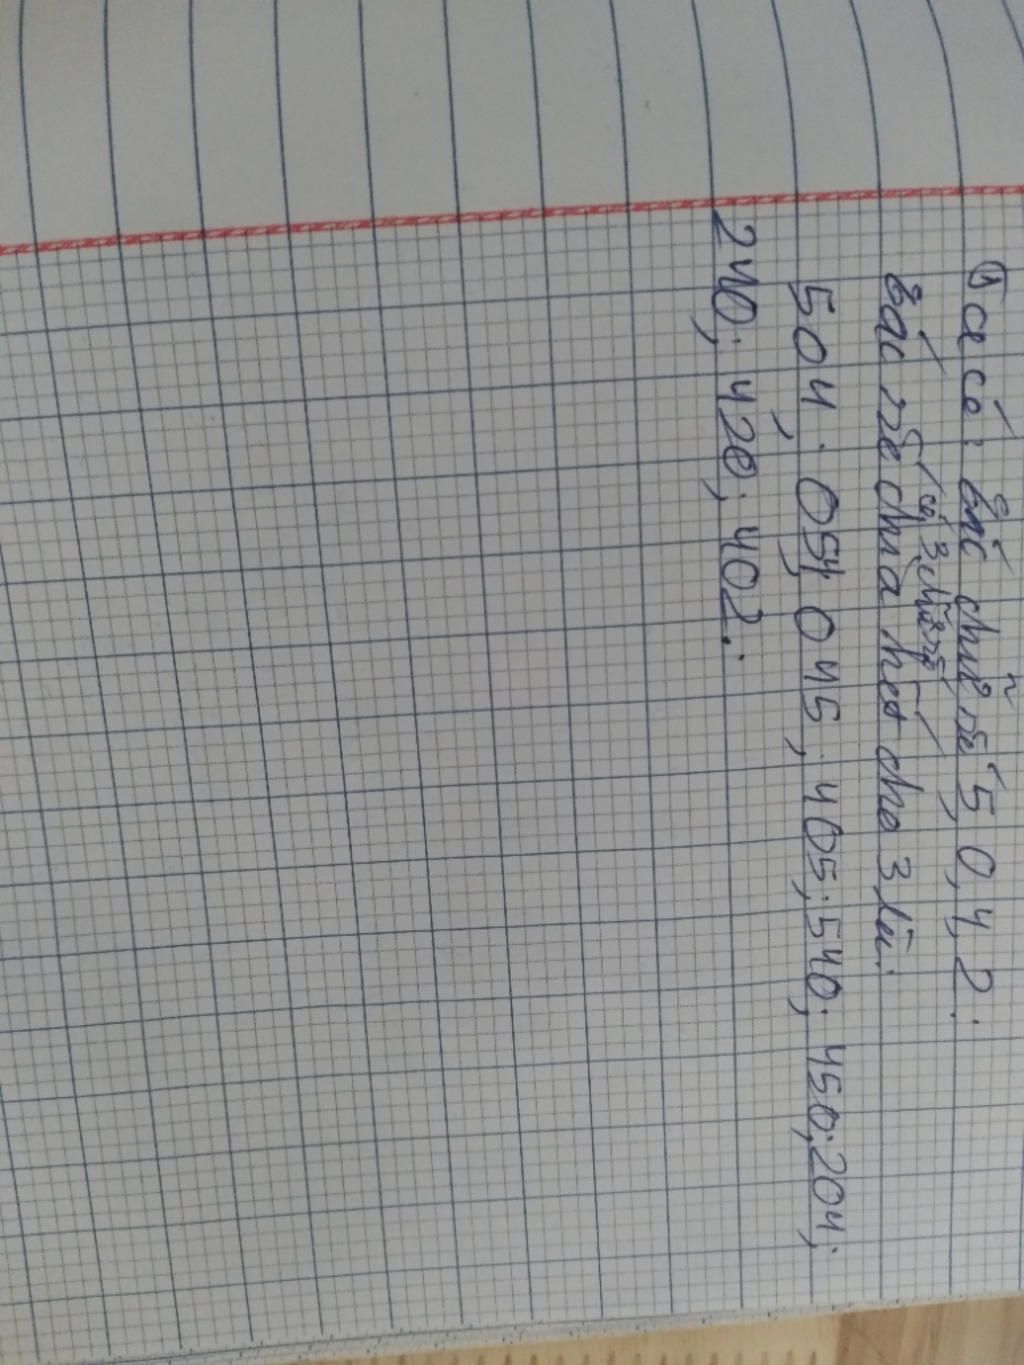 ① ta có: các chữ số 5, 0, 4, 2.
các số có 3 chữ số chia hết cho 3 là:
504; 054; 045; 405; 540; 450; 204;
240; 420; 402.